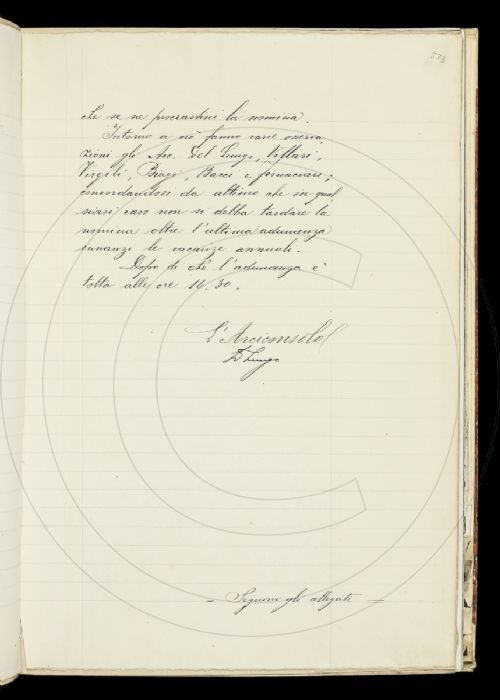 523
che se ne procrastini la nomina.
Intorno a ciò fanno varie osserva,
zioni gli Acc. Del Lungo, Villari,
Virgili, Biagi, Bacci e Fornaciari;
concordandosi da ultimo che in qual
siasi caso non si debba tardare la
nomina oltre l'ultima adunanza
innanzi le vacanze annuali.
Dopo di che l'adunanza è
tolta alle ore 16.30.
L'Arciconsolo
D Lungo
– Seguono gli allegati –